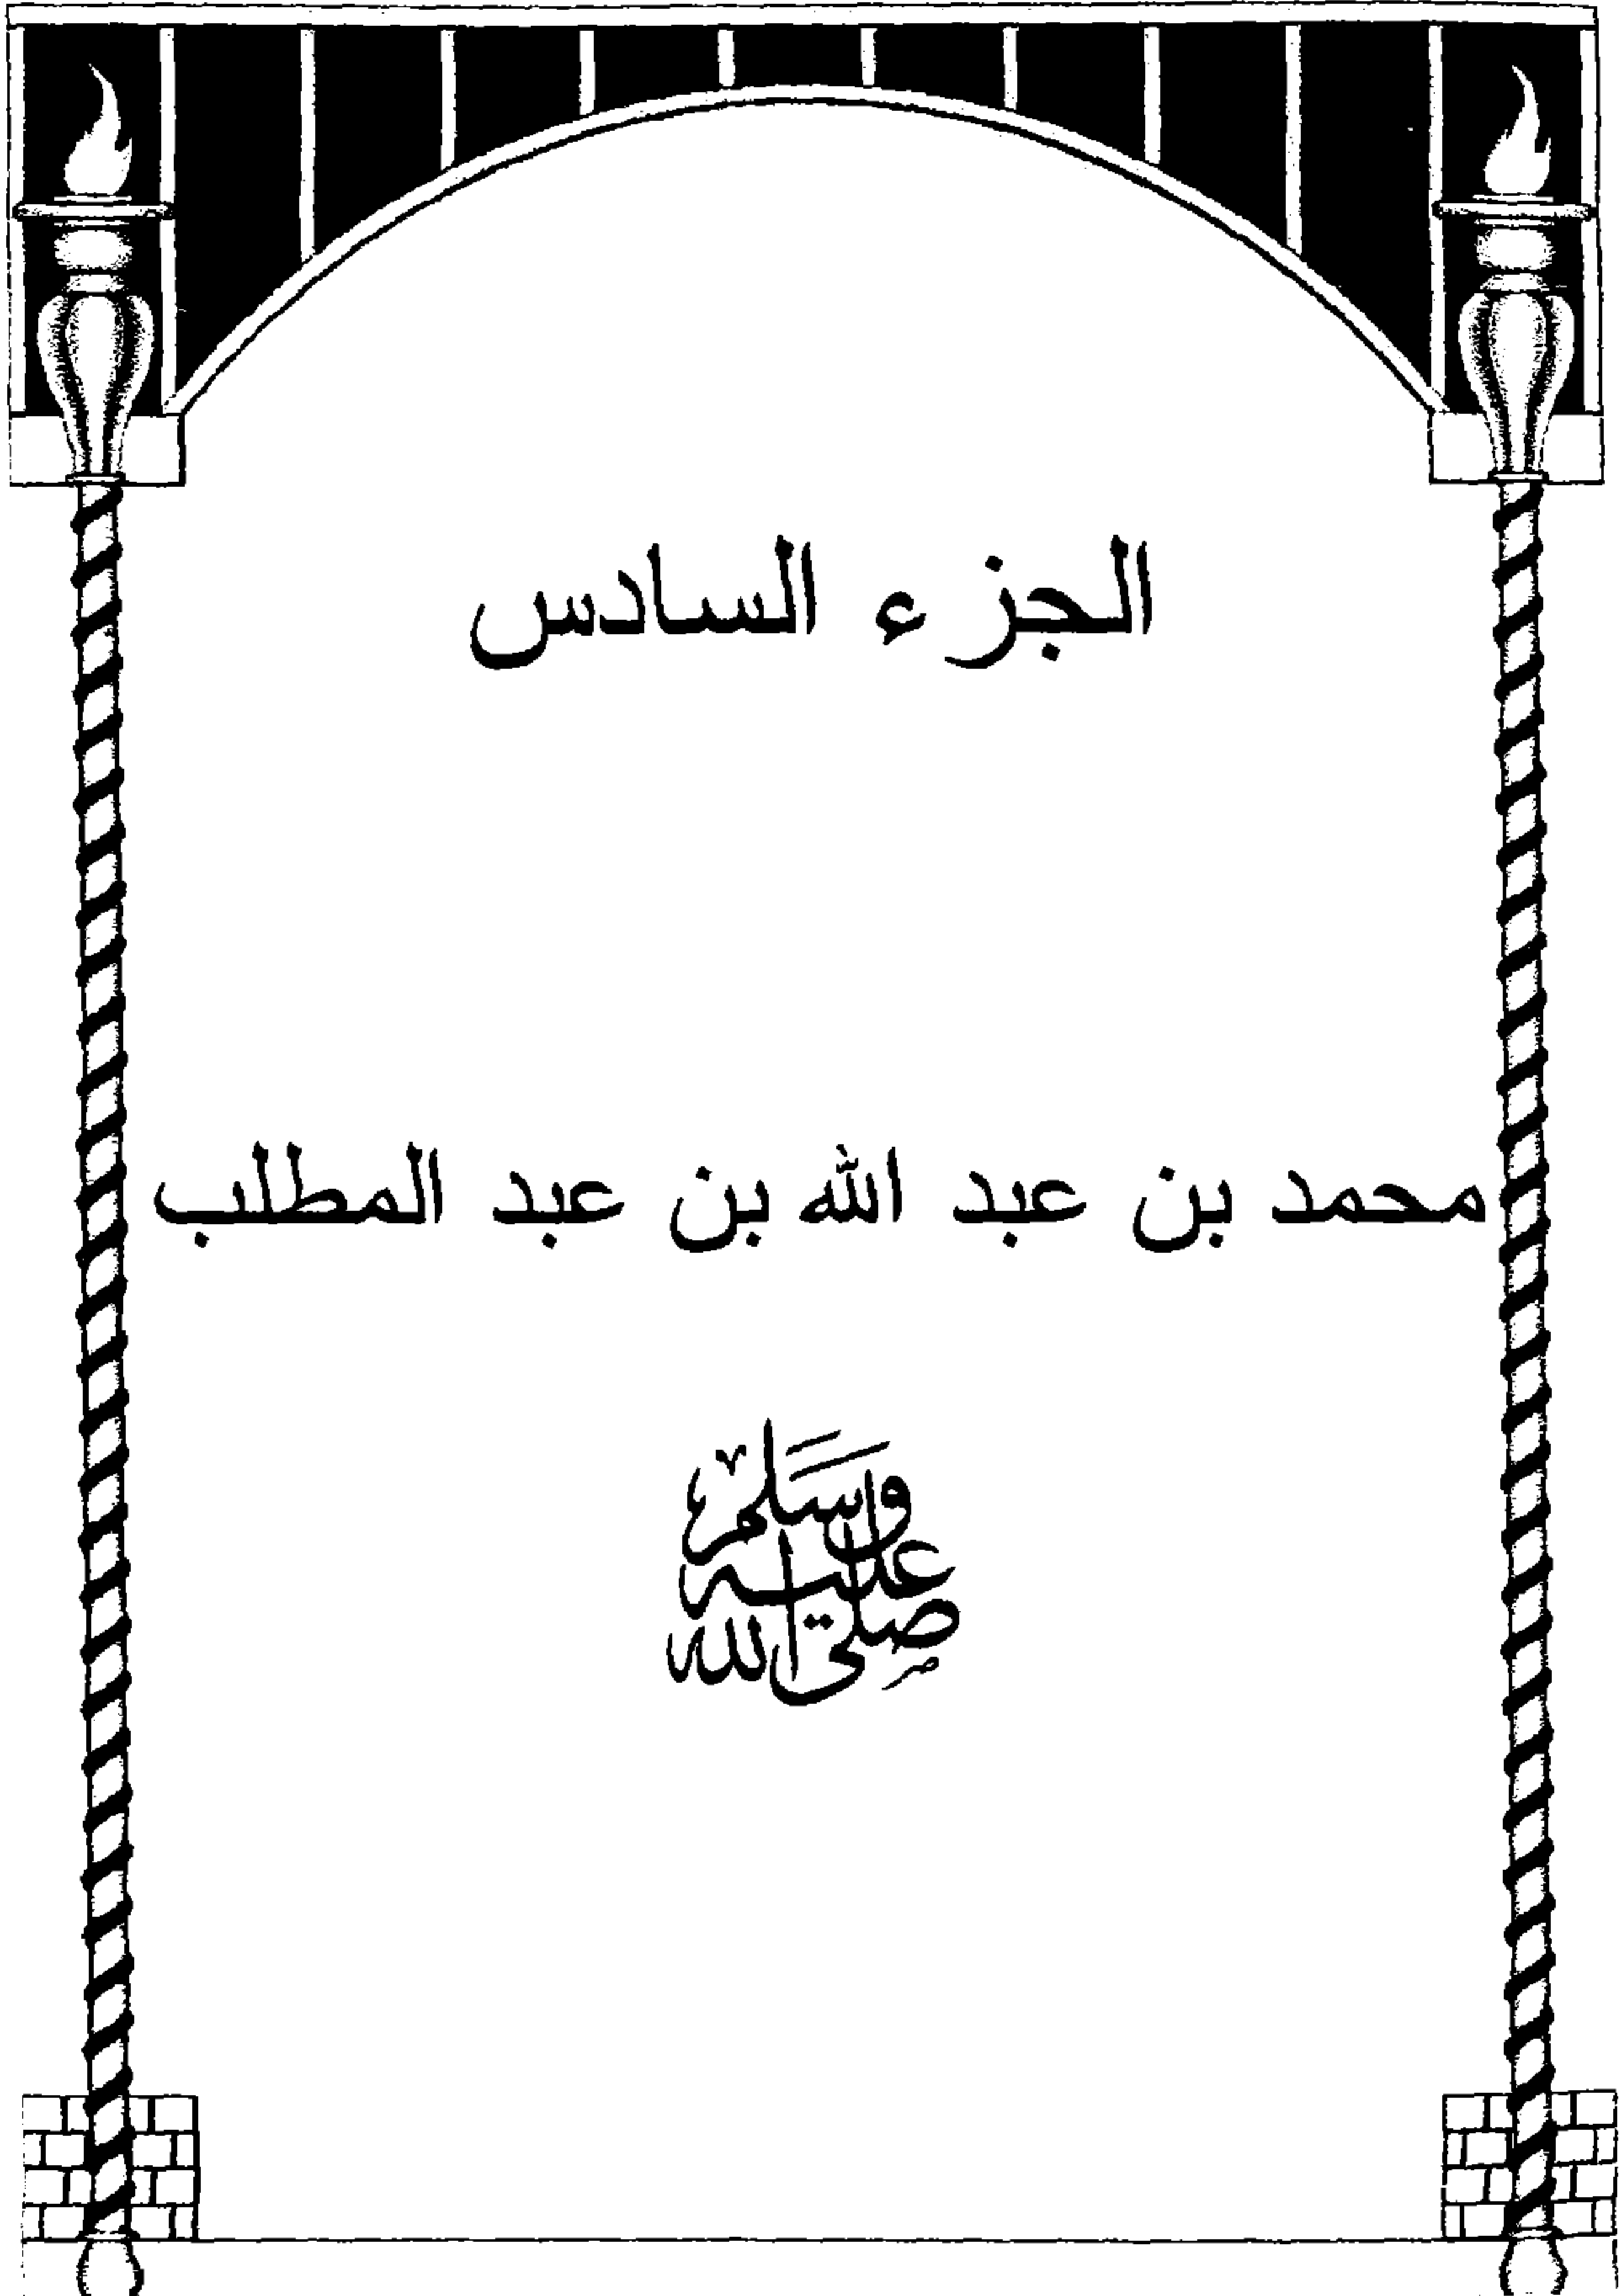 الجزء السادس
محمد بن عبد الله بن عبد المطلب
صلى الله عليه وسلم